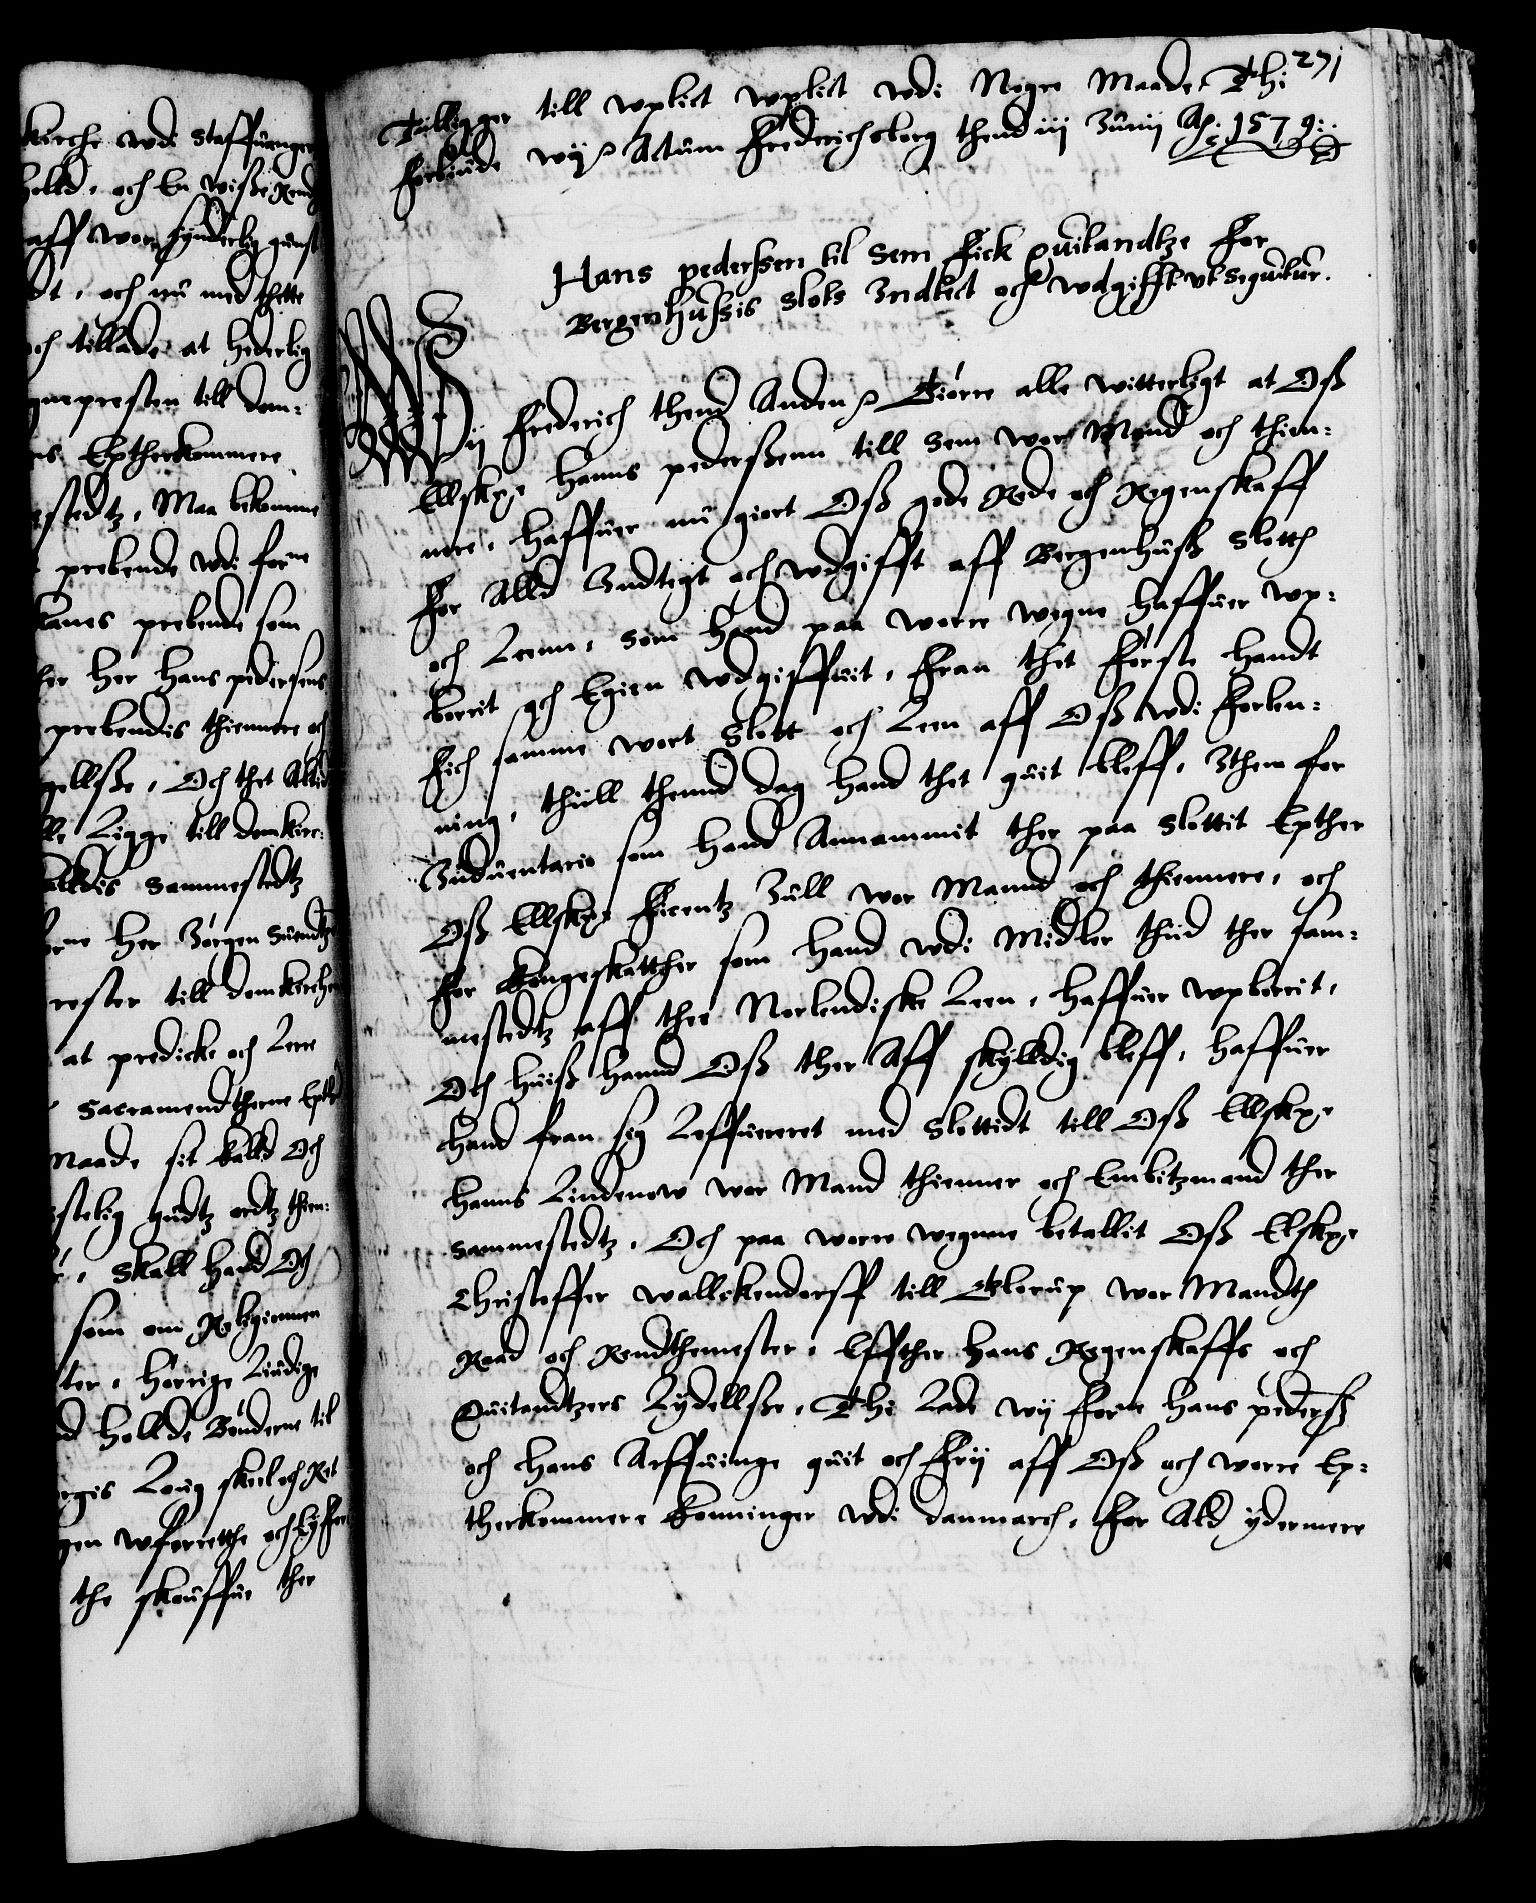 kirche wdi Staffuanger
holld, och En wisse Rend
aff wor synderlig gunst
dt, och nu med thette
och tillade at hederlig
gnepresten till dom-
ns Eptherkommere
estedtz, Maa bekomme
prebende wdi forne
kanes prebende som
her hans pedersens
prebendis thiennere och
gellsse, Och thet Altid
lle Ligge till domkirc-
alldis sammestedtz
forne her Jörgen Suendtz
rester till domkirchen
at predicke och Lere
Sacramendtherne Epth
maade sit kalld Och
stelig gudtz ordtz thien-
Skall hand Och
som om Religionen
ter, horrige Lindige
d hollde Bönderne til
rgis Loug skeel och Ret
gen wforrette och
the skouffue ther
271
Tilligger till wplict wplict wdi Nogre Maade, Thi
forbiude wij etc. Actum Frederichsborg thend iij Junij Ao. 1579.
Hans pederssen til Sem fick quitandtze for
Bergenhussis Slots Indtect och wdgifft vt seqwitur.
Wij Frederich thend Anden etc. Giörre alle witterligt at Oss
Ellskpe hanns pederssenn till Sem wor Mand och thien-
nere, haffuer nu giort Oss gode Rede och Regenskaff
for Alld Indtegt och wdgifft aff Bergenhuss Slotth
och Leenn, som hand paa worre wegne haffuer wp-
borrit och Egien wdgiffuit, fran thet förste handt
fich samme wort Slott och Leen aff Oss wdi forlen-
ning, thiill thennd dag hand thet quit bleff, Ithem for
Induentario som hand Annammit ther paa Slottit Epther
Oss Ellskpe ficentz Jull wor Mannd och thiennere, och
for kongeskatther som hand wdi Midler thiid ther sam-
mestedtz aff thee Norlendiske Leen, haffuer wpborrit,
Och huiss hannd Oss ther Aff skylldig bleff, haffuer
hand fran sig Leffuereret med Slottidt till Oss Ellskpe
hanns Lindenow wor Mand thienner och Embitzmand ther
sammestedtz, Och paa worre wegnne betallit Oss Elskpe
Christoffer wallckendorff till Glorup wor Mandth
Raad och Rendthemester, Effther hans Regenskaffs och
Quitandtzers Lydellsse, Thi Lade wij forne hans pederss
och hans Arffuinge quit och frij aff Oss och worre Ep-
therkommere konninger wdi danmarch, for Ald ydermere